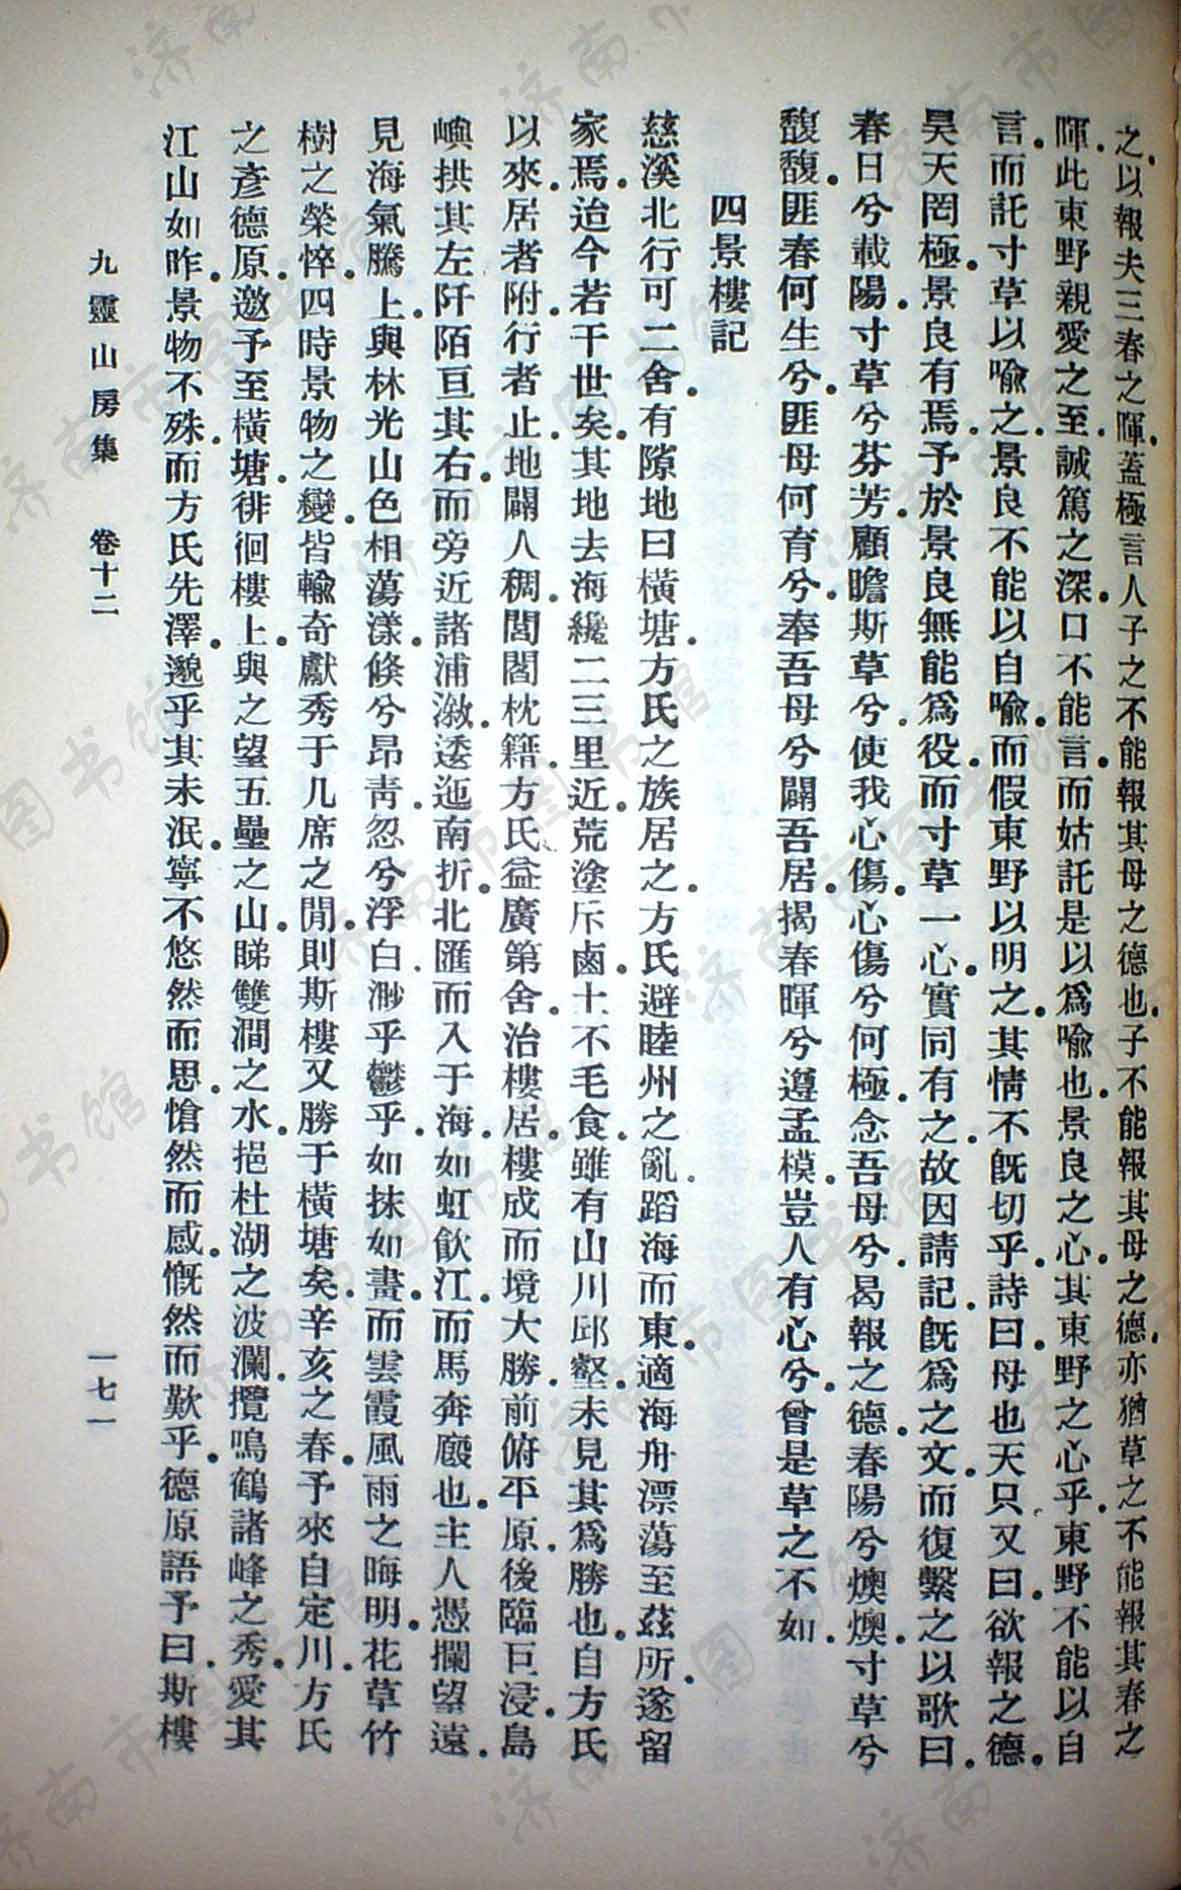 之以報夫三春之暉蓋極言人子之不能報其母之德也子不能報其母之德亦猶草之不能報其春之
暉此東野親愛之至誠篤之深口不能言而姑託是以爲喩也景良之心其東野之心乎東野不能以自
言而託寸草以喩之景良不能以自喩而假東野以明之其情不旣切乎詩曰母也天只又曰欲報之德
昊天罔極景良有焉予於景良無能爲役而寸草一心實同有之故因請記旣爲之文而復繫之以歌曰
春日兮載陽寸草兮芬芳顧瞻斯草兮使我心傷心傷兮何極念吾母兮曷報之德春陽兮燠燠寸草兮
馥馥匪春何生兮匪母何育兮奉吾母兮闢吾居揭春暉兮遵孟模豈人有心兮曾是草之不如
四景樓記
慈溪北行可二舍有隙地曰橫塘方氏之族居之方氏避睦州之亂蹈海而東適海舟漂蕩至茲所遂留
家焉迨今若干世矣其地去海纔二三里近荒塗斥鹵土不毛食雖有山川邱壑未見其爲勝也自方氏
以來居者附行者止地闢人稠閭閻枕籍方氏益廣第舍治樓居樓成而境大勝前俯平原後臨巨浸島
嶼拱其左阡陌亘其右而旁近諸浦漵逶迤南折北匯而入于海如虹飮江而馬奔廄也主人憑攔望遠
見海氣騰上與林光山色相蕩漾倏兮昂靑忽兮浮白渺乎鬱乎如抹如畫而雲霞風雨之晦明花草竹
樹之榮悴四時景物之變皆輸奇獻秀于几席之閒則斯樓又勝于橫塘矣辛亥之春予來自定川方氏
之彥德原邀予至橫塘徘徊樓上與之望五壘之山睇雙澗之水挹杜湖之波瀾攬鳴鶴諸峰之秀愛其
江山如昨景物不殊而方氏先澤邈乎其未泯寧不悠然而思愴然而感慨然而歎乎德原語予曰斯樓
九靈山房集 卷十二 一七一
濟南市图书馆